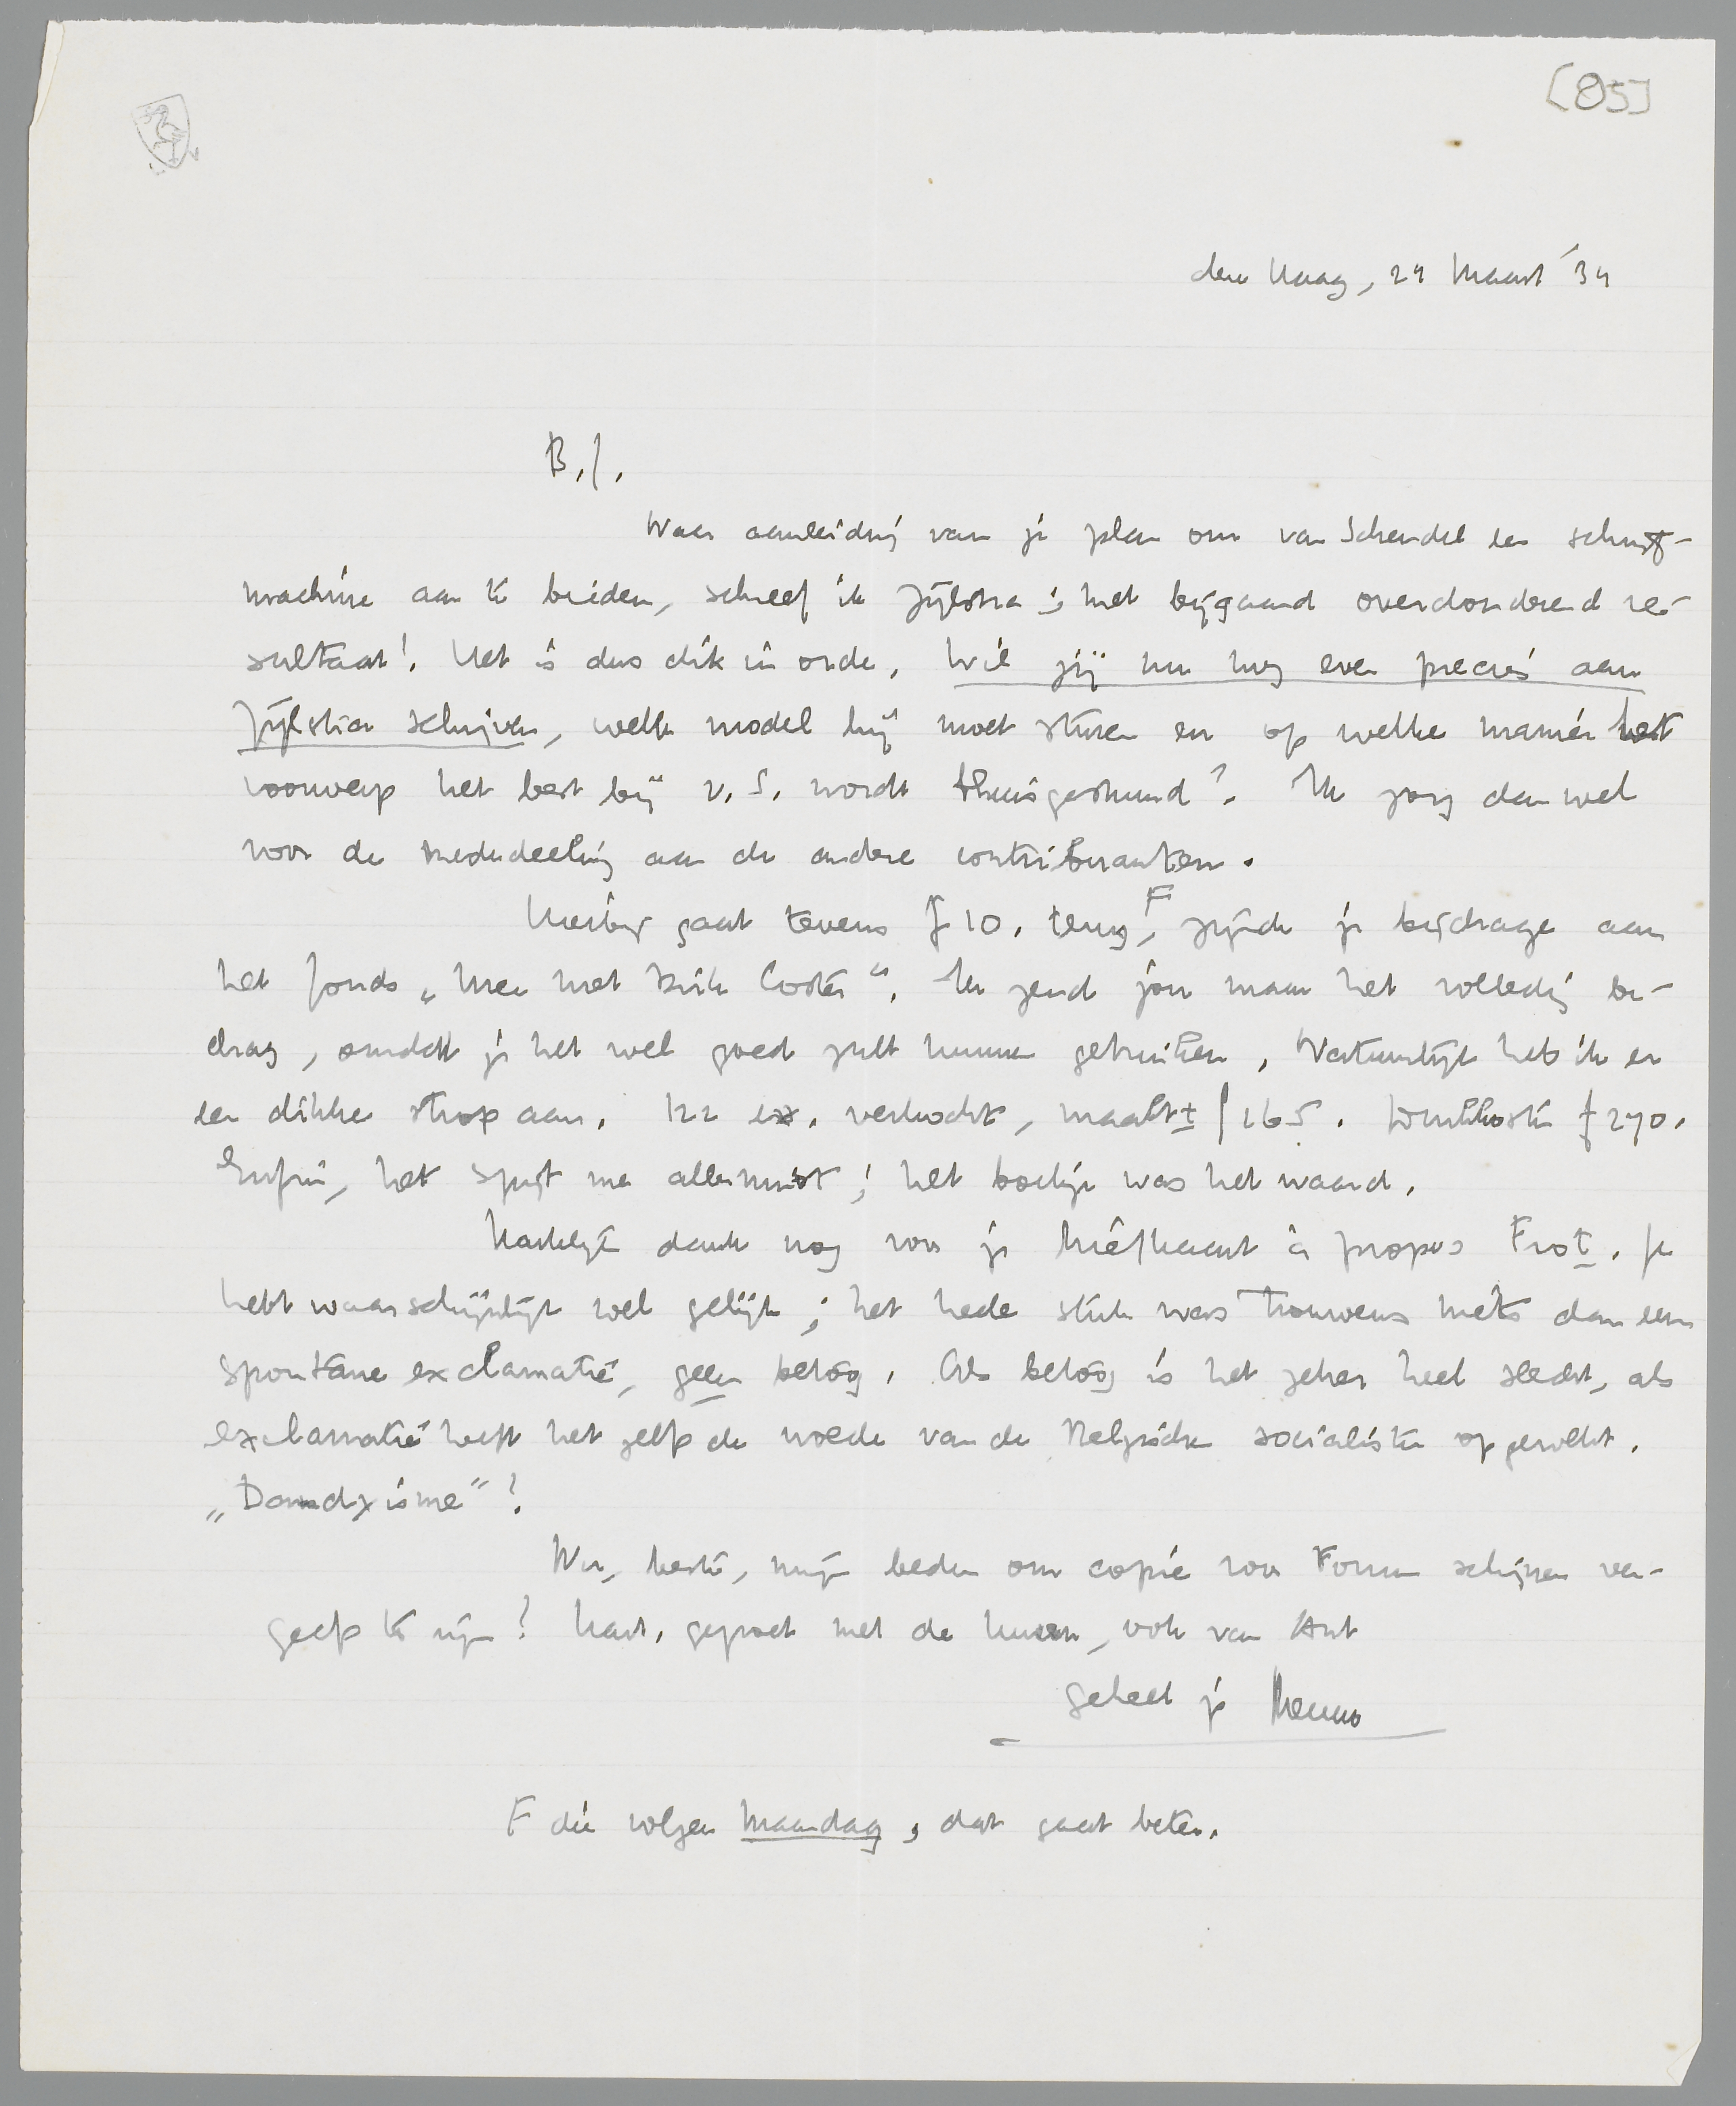 [85]
den Haag, 24 Maart '34
B.J.
Naar aanleiding van je plan om van Schendel een schrijf-
machine aan te bieden, schreef ik Zijlstra; met bijgaand overdonderend re-
sultaat! Het is dus dik in orde. Wil jij nu nog even precies aan
Zijlstra schrijven, welk model hij moet sturen en op welke manier het
voorwerp het best bij v. S. wordt thuisgestuurd? Ik zorg dan wel
voor de mededeeling aan de andere contribuanten.
Hierbij gaat tevens f 10. terug F, zijnde je bijdrage aan
het fonds „Mee met Dirk Coster". Ik zend jou maar het volledig be-
drag, omdat je het wel goed zult kunnen gebruiken. Natuurlijk heb ik er
een dikke strop aan. 122 ex. verkocht, maakt ± f 165. Drukkosten f 270.
Enfin, het spijt me allerminst; het boekje was het waard.
Hartelijk dank nog voor je briefkaart à propos Frot. Je
hebt waarschijnlijk wel gelijk; het heele stuk was trouwens niets dan een
spontane exclamatie, geen betoog. Als betoog is het zeker heel slecht, als
exclamatie heeft het zelfs de woede van de Belgische socialisten opgewekt.
„Dandyisme"!
Nu, beste, mijn beden om copie voor Forum schijnen ver-
geefs te zijn? Hart. groet met de huwen, ook van Ant
geheel je Menno
F die volgen Maandag, dat gaat beter.